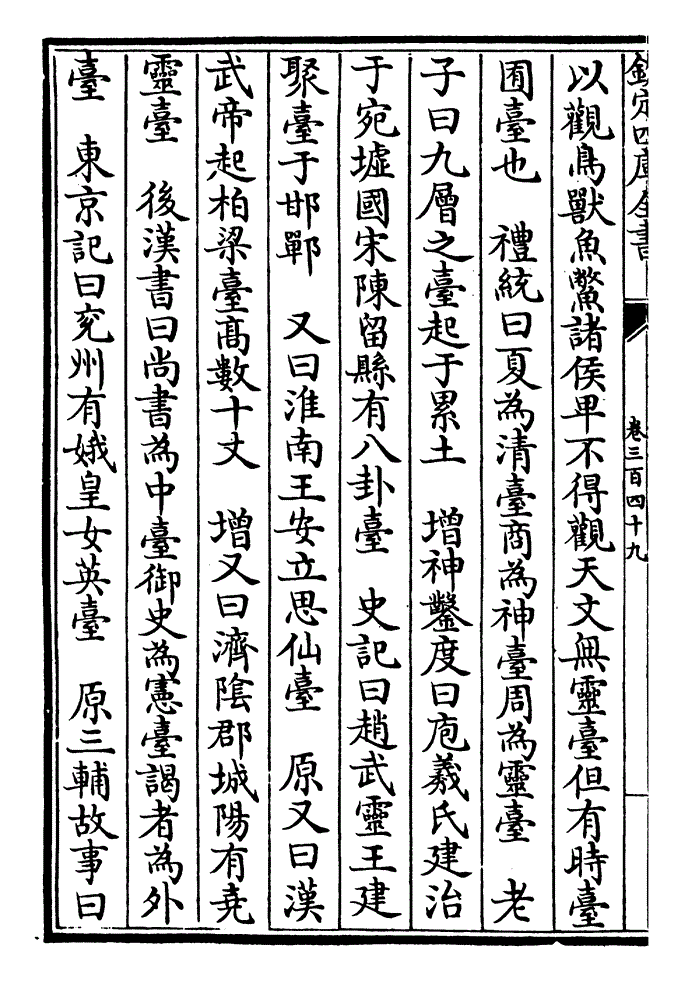 欽定四庫全書
卷三百四十九
以觀鳥獸魚鼈諸侯卑不得觀天文無靈臺但有時臺
囿臺也　禮統曰夏為清臺商為神臺周為靈臺　老
子曰九層之臺起于累土　增神鑿度曰庖羲氏建治
于宛墟國宋陳留縣有八卦臺　史記曰趙武靈王建
聚臺于邯鄲　又曰淮南王安立思仙臺　原又曰漢
武帝起柏梁臺高數十丈　增又曰濟陰郡城陽有堯
靈臺　後漢書曰尚書為中臺御史為憲臺謁者為外
臺　東京記曰兖州有娥皇女英臺　原三輔故事曰